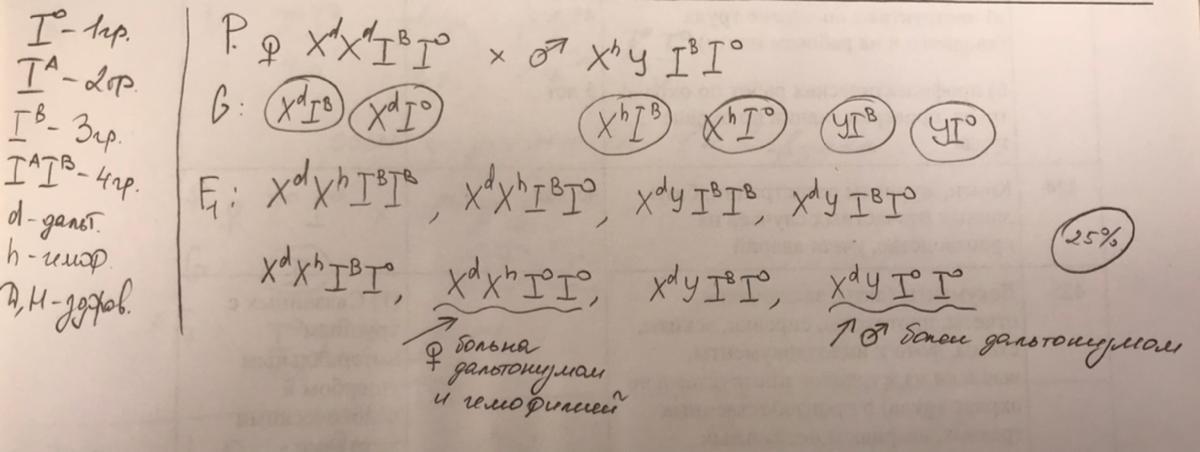 I⁰ - 1гр.
Iᴬ - 2гр.
Iᴮ - 3гр.
IᴬIᴮ - 4гр.
d - дальт.
h - гемоф.
D, H - здоров.
P. ♀ XᵈXᵈIᴮI⁰ × ♂ XʰY IᴮI⁰
G: XᵈIᴮ XᵈI⁰ XʰIᴮ XʰI⁰ YIᴮ YI⁰
F₁: XᵈXʰIᴮIᴮ, XᵈXʰIᴮI⁰, XᵈYIᴮIᴮ, XᵈYIᴮI⁰
XᵈXʰIᴮI⁰, XᵈXʰI⁰I⁰, XᵈYIᴮI⁰, XᵈYI⁰I⁰
25%
♀ больна
дальтонизмом
и гемофилией
♂ болен дальтонизмом